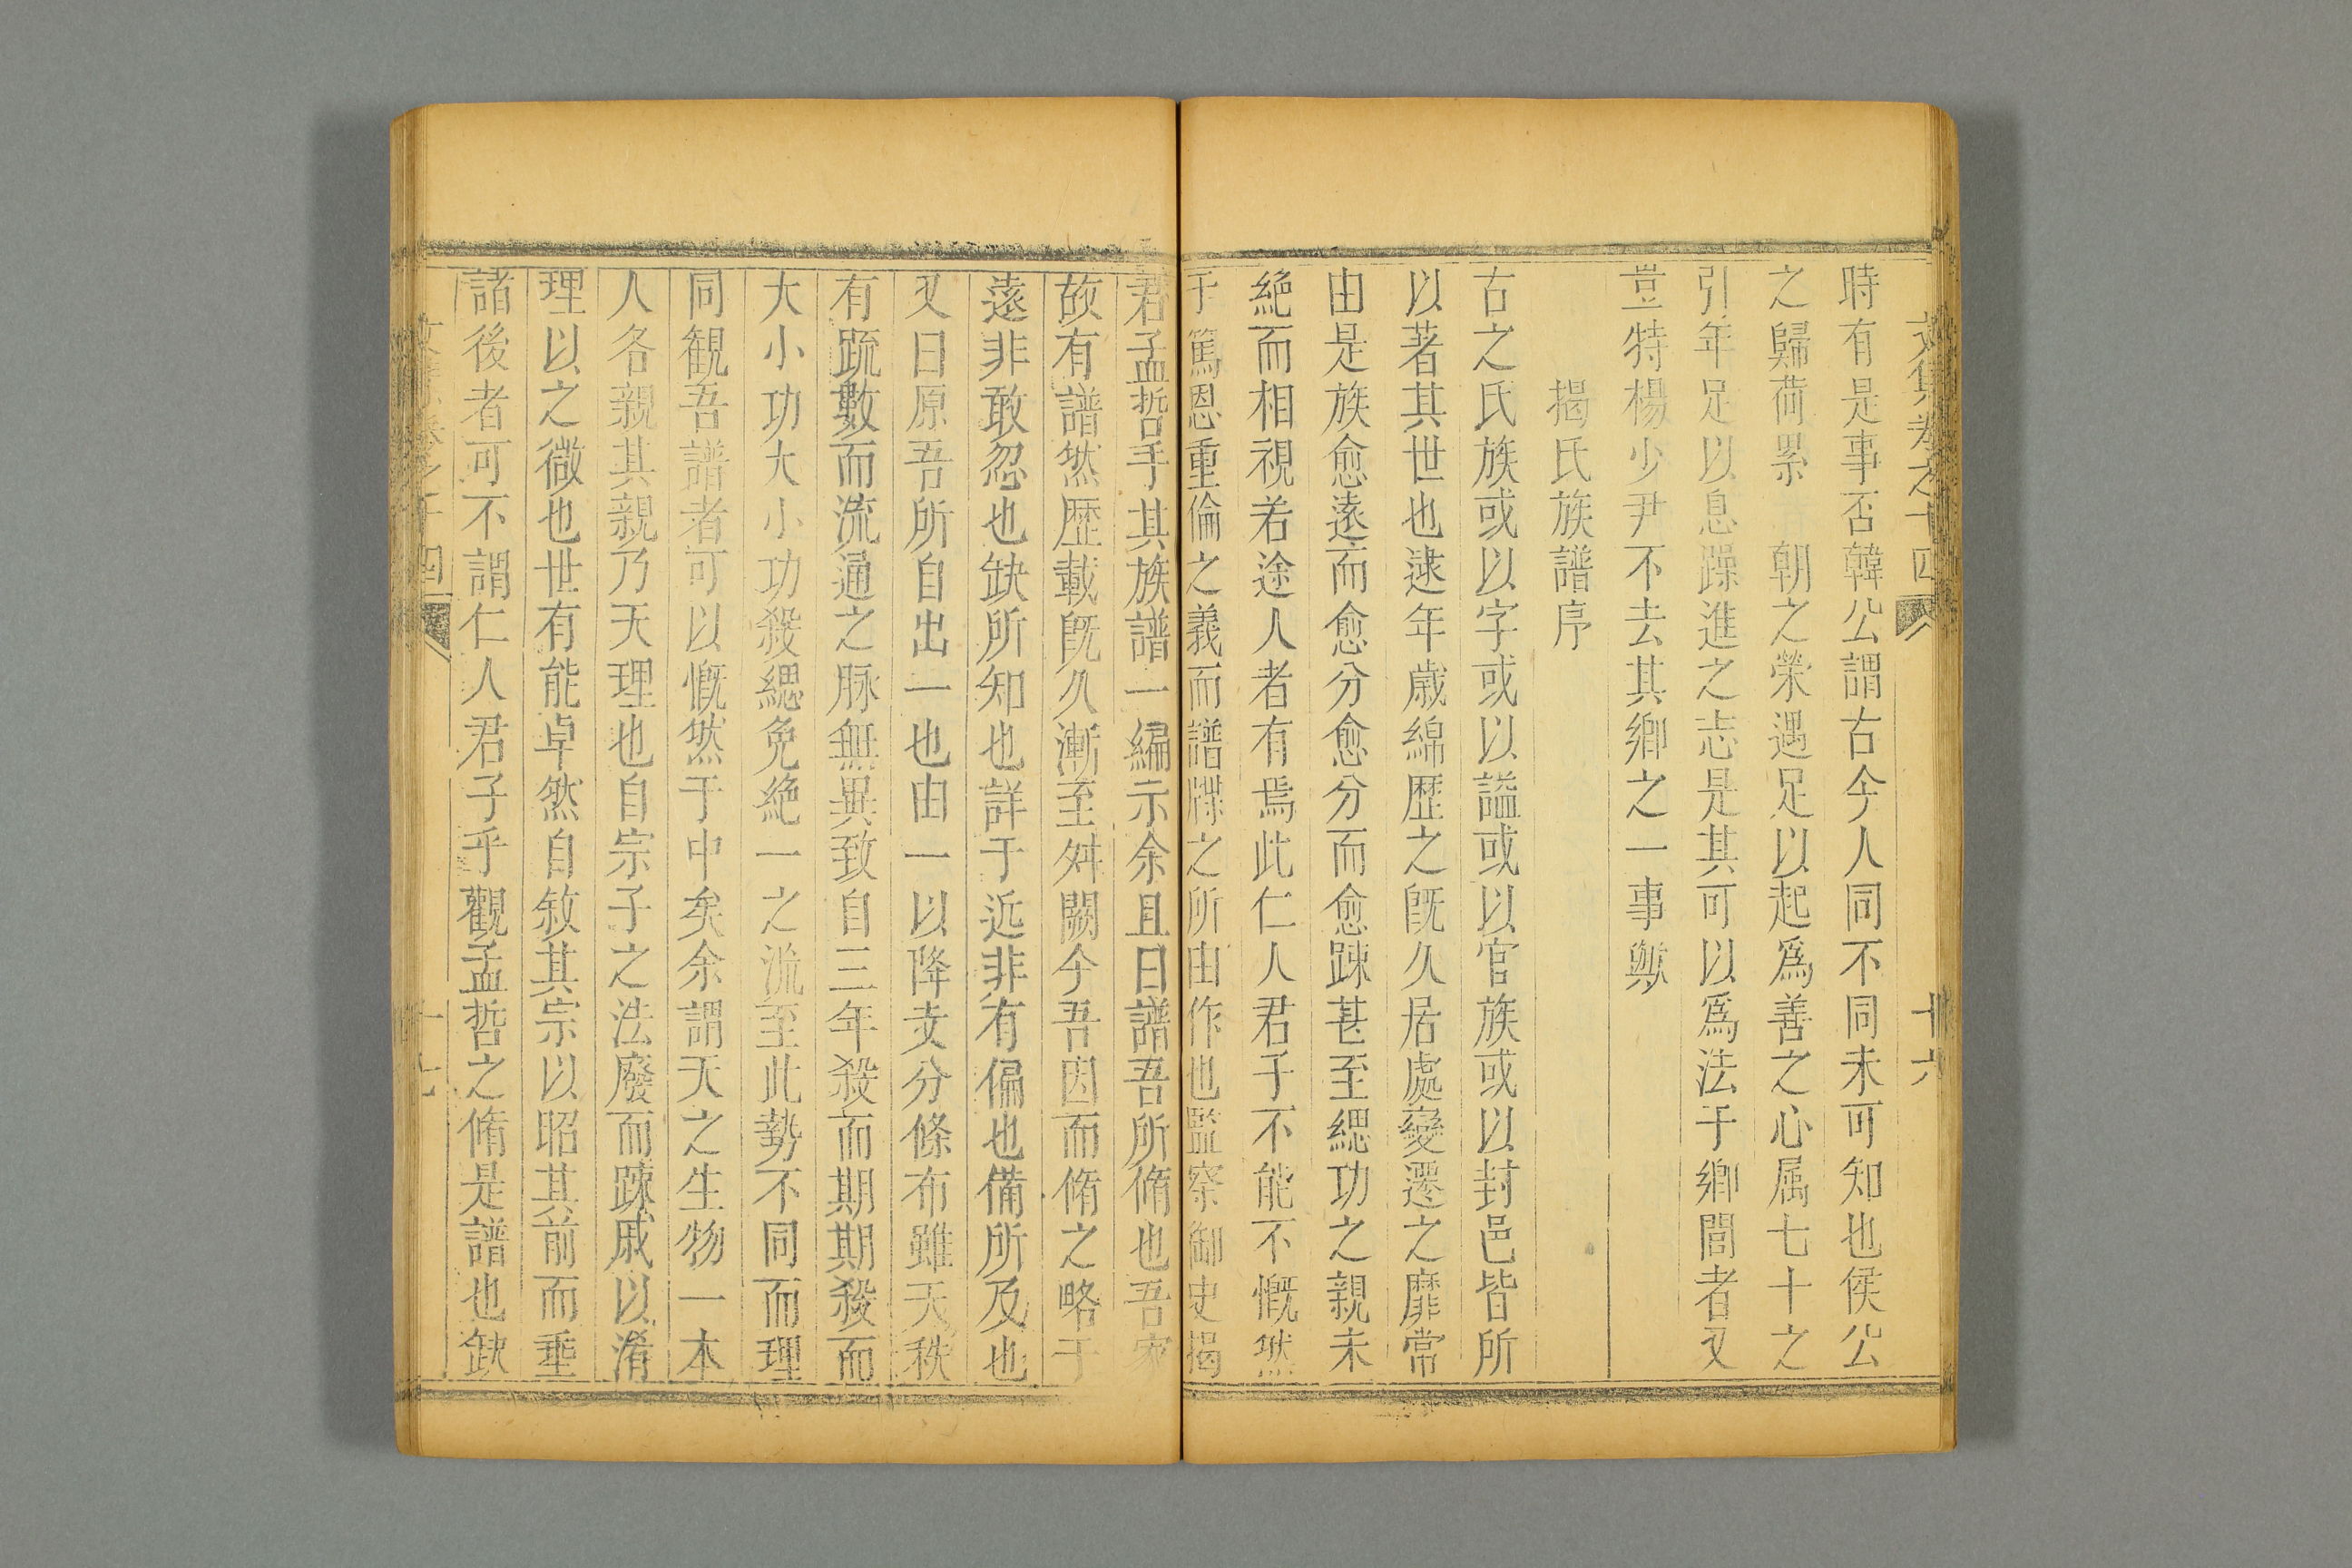 文集卷之十四
十六
時有是事否韓公謂古今人同不同未可知也侯公
之歸荷累　朝之榮遇足以起爲善之心屬七十之
引年足以息躁進之志是其可以爲法于鄉閭者又
豈特楊少尹不去其鄉之一事歟
揭氏族譜序
古之氏族或以字或以謚或以官族或以封邑皆所
以著其世也逮年歲綿歷之旣久居處變遷之靡常
由是族愈遠而愈分愈分而愈踈甚至緦功之親未
絶而相視若途人者有焉此仁人君子不能不慨然
于篤恩重倫之義而譜牒之所由作也監察御史揭
君孟哲手其族譜一編示余且曰譜吾所脩也吾家
故有譜然歷載旣久漸至舛闕今吾因而脩之略于
遠非敢忽也缺所知也詳于近非有偏也備所及也
又曰原吾所自出一也由一以降支分條布雖天秩
有䟽數而流通之脉無異致自三年殺而期期殺而
大小功大小功殺緦免絶一之流至此勢不同而理
同觀吾譜者可以慨然于中矣余謂天之生物一本
人各親其親乃天理也自宗子之法廢而踈戚以淆
理以之微也世有能卓然自敘其宗以昭其前而埀
諸後者可不謂仁人君子乎觀孟哲之脩是譜也缺